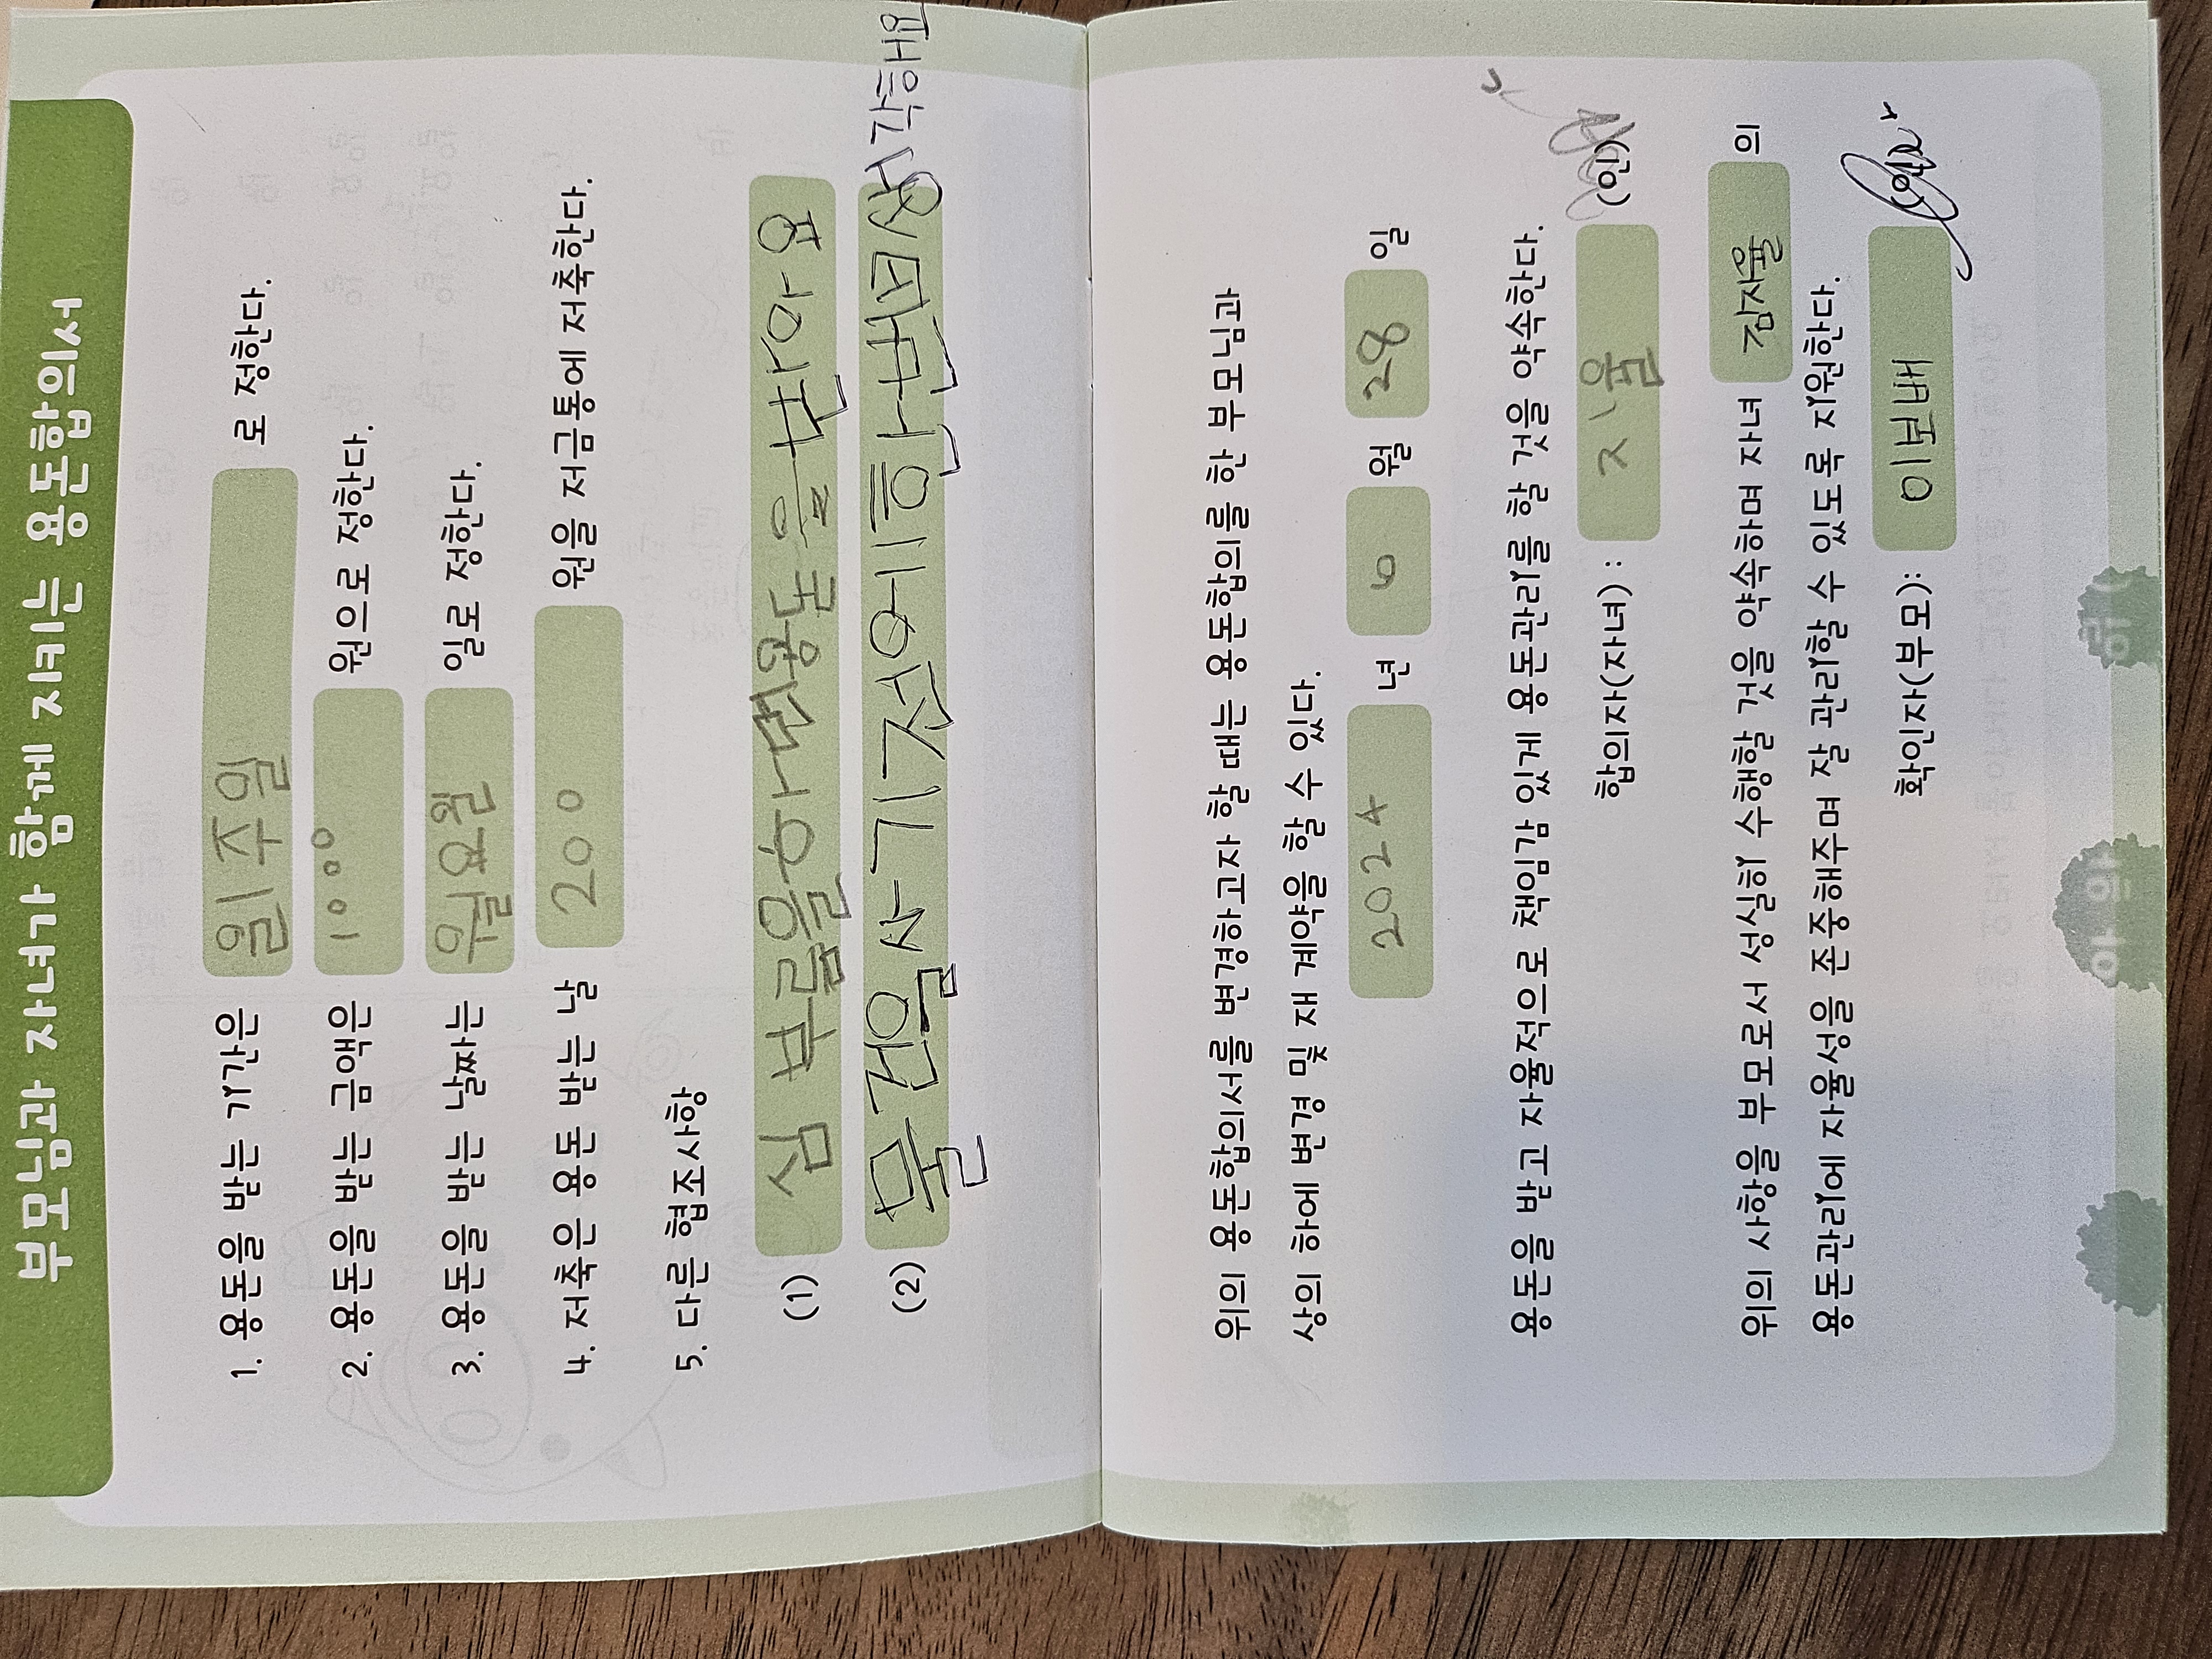 부모님과 자녀가 함께 지키는 용돈합의서
1. 용돈을 받는 기간은 일주일 로 정한다.
2. 용돈을 받는 금액은 1000 원으로 정한다.
3. 용돈을 받는 날짜는 월요일 일로 정한다.
4. 저축은 용돈 받는 날 200 원을 저금통에 저축한다.
5. 다른 협조사항
(1) 심부름을 하면 용돈을 받아요
(2) 물건 사기 전에 한번 생각해요
위의 용돈합의서를 변경하고자 할 때는 용돈합의를 한 부모님과
상의 하에 변경 및 재 계약을 할 수 있다.
2024 년 6 월 28 일
용돈을 받고 자율적으로 책임감 있게 용돈관리를 할 것을 약속한다.
합의자(자녀) : 지율 (인)
위의 사항을 부모로서 성실히 수행할 것을 약속하며 자녀 김지율 의
용돈관리에 자율성을 존중해주며 잘 관리할 수 있도록 지원한다.
확인자(부모): 이보배 (인)